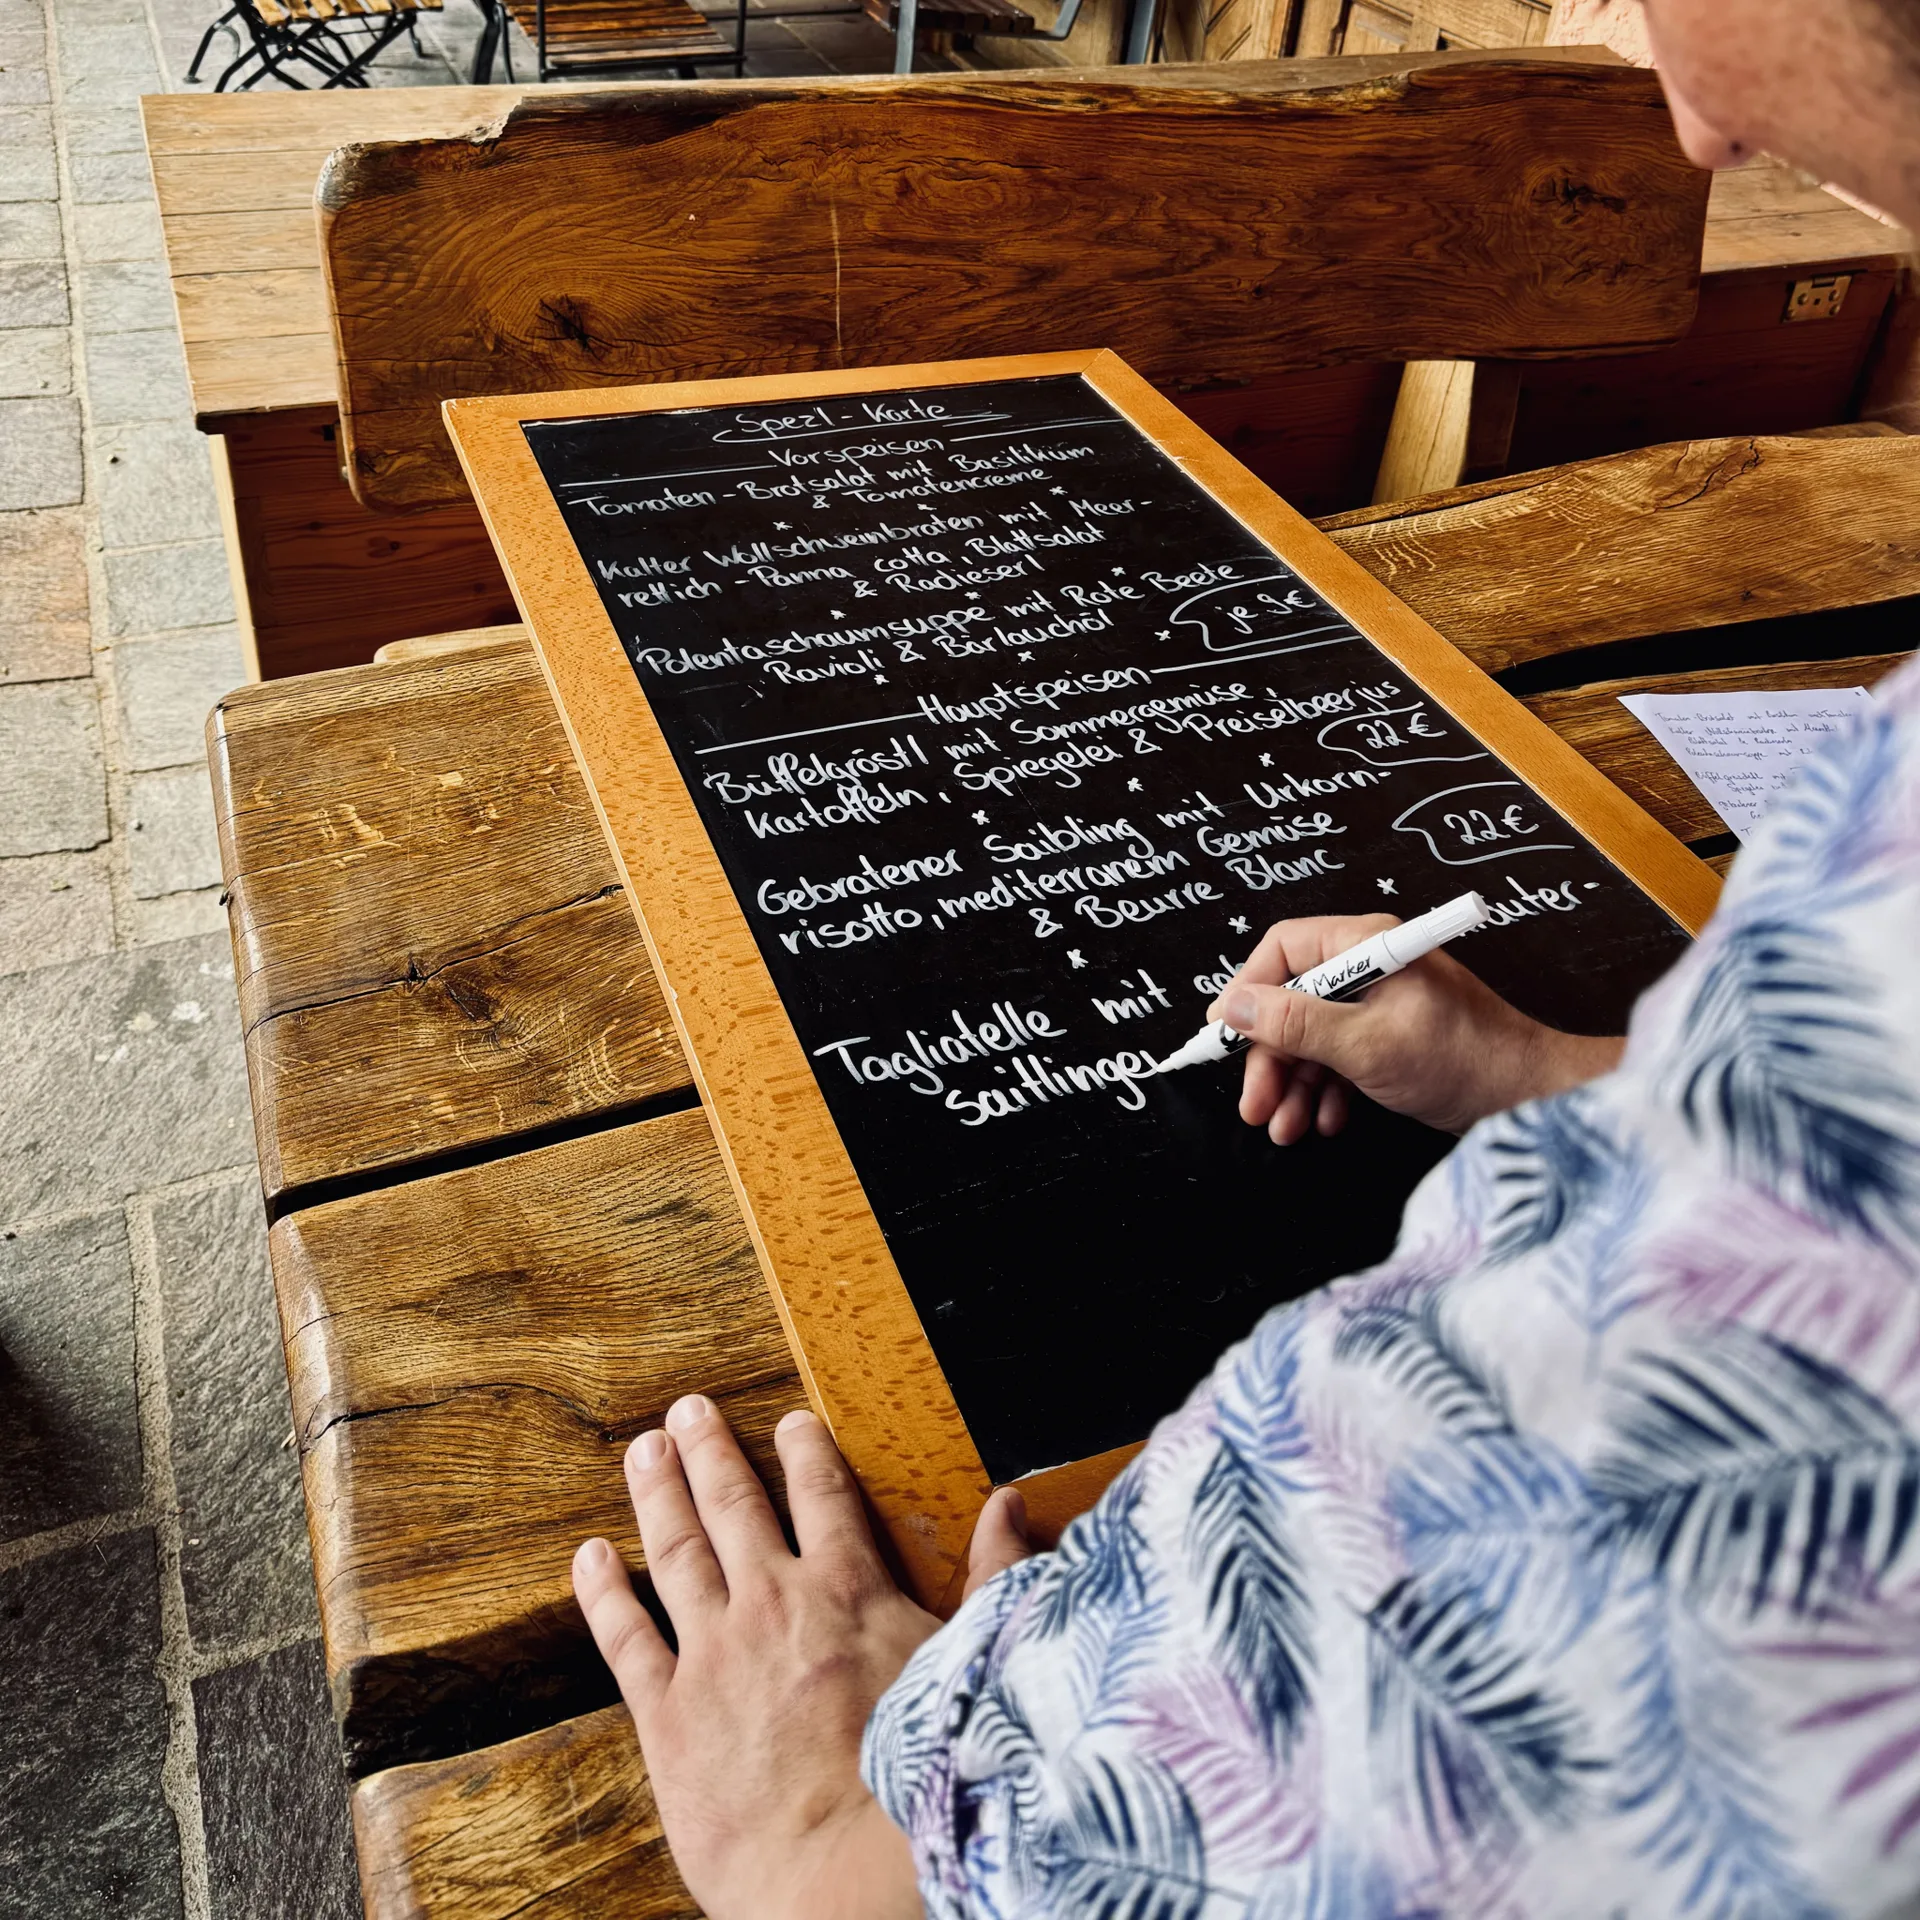 Spezl-Karte
Vorspeisen
Tomaten-Brotsalat mit Basilikum
& Tomatencreme
Kalter Wollschweinbraten mit Meer-
rettich-Panna cotta, Blattsalat
& Radieserl
Polentaschaumsuppe mit Rote Beete
Ravioli & Bärlauchöl
je 9€
Hauptspeisen
Büffelgröstl mit Sommergemüse,
Kartoffeln, Spiegelei & Preiselbeerjus
22€
Gebratener Saibling mit Urkorn-
risotto, mediterranem Gemüse
& Beurre Blanc
22€
Tagliatelle mit
saitlingen
Marker